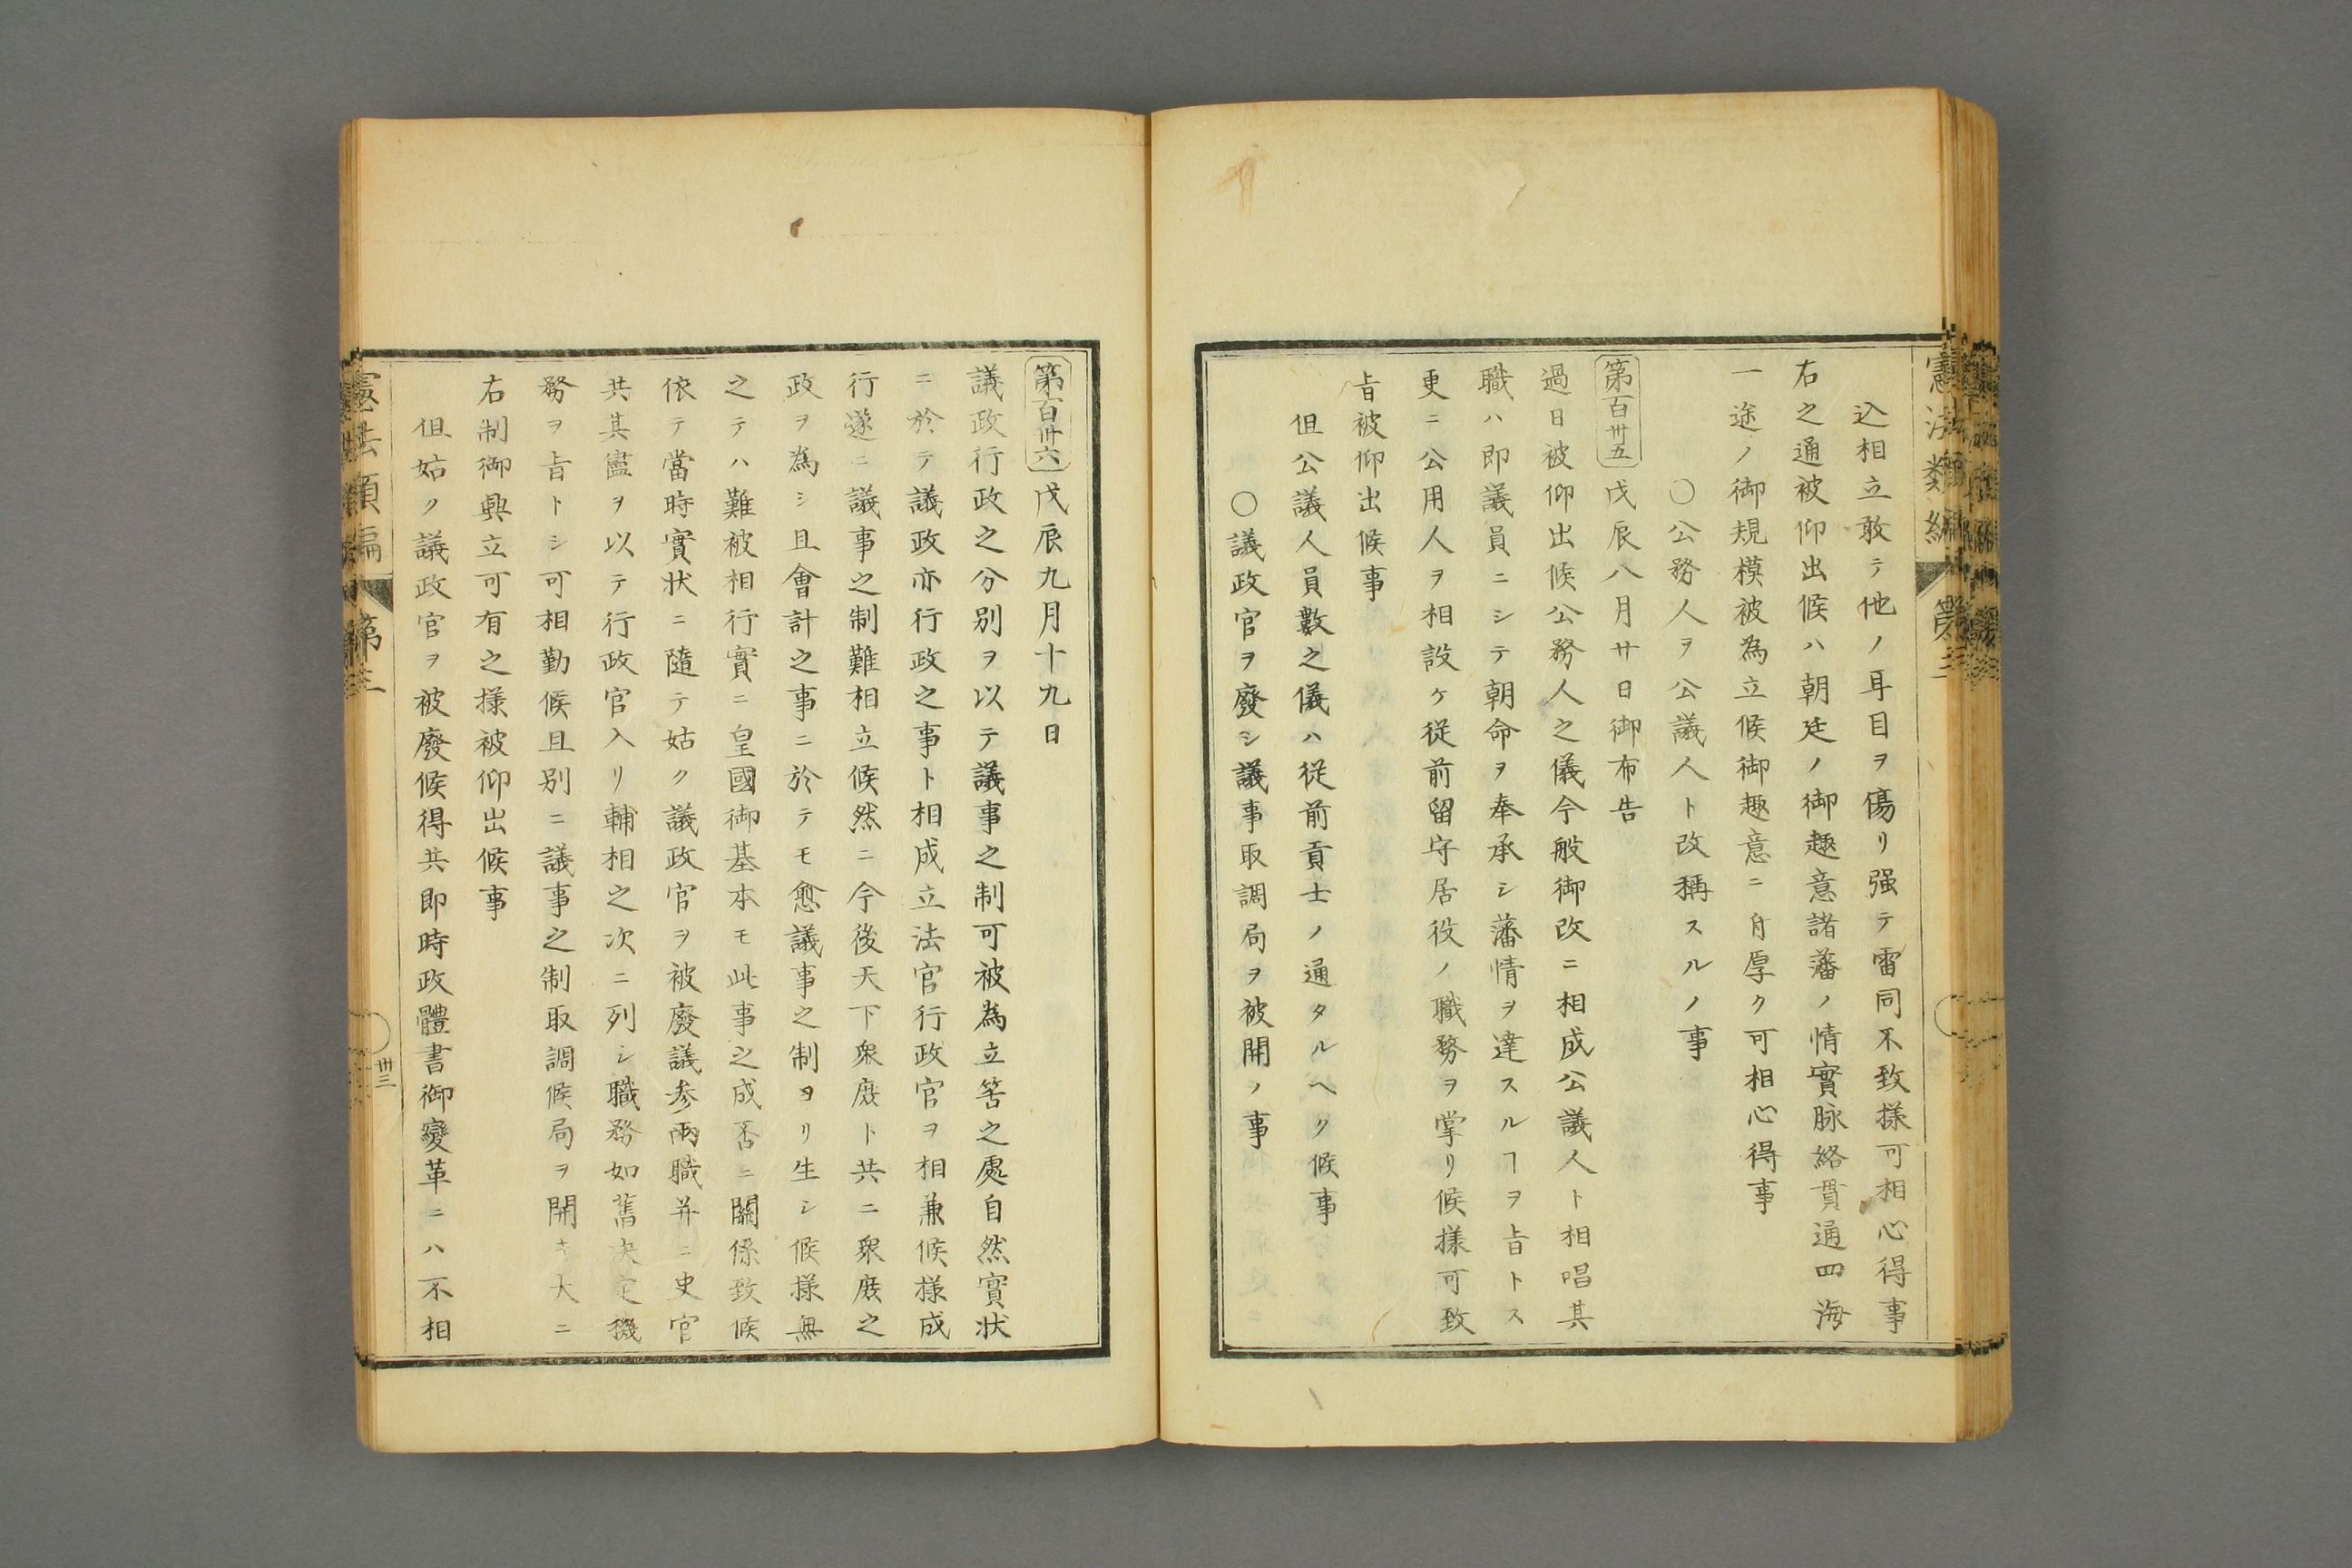 憲法類編 第三
込相立敢テ他ノ耳目ヲ傷リ强テ雷同不致樣可相心得事
右之通被仰出候ハ朝廷ノ御趣意諸藩ノ情實脉絡貫通四海
一途ノ御規模被為立候御趣意ニ付厚ク可相心得事
○公務人ヲ公議人ト改稱スルノ事
第百卅五 戊辰八月廿日御布告
過日被仰出候公務人之儀今般御改ニ相成公議人ト相唱其
職ハ即議員ニシテ朝命ヲ奉承シ藩情ヲ達スルヿヲ旨トス
更ニ公用人ヲ相設ケ従前留守居役ノ職務ヲ掌リ候樣可致
旨被仰出候事
但公議人員數之儀ハ従前貢士ノ通タルヘク候事
○議政官ヲ廢シ議事取調局ヲ被開ノ事
第百卅六 戊辰九月十九日
議政行政之分別ヲ以テ議事之制可被為立筈之處自然實状
ニ於テ議政亦行政之事ト相成立法官行政官ヲ相兼候様成
行遂ニ議事之制難相立候然ニ今後天下衆庶ト共ニ衆庶之
政ヲ為シ且會計之事ニ於テモ愈議事之制ヨリ生シ候様無
之テハ難被相行實ニ皇國御基本モ此事之成否ニ關係致候
依テ當時實状ニ隨テ姑ク議政官ヲ被廢議参兩職并ニ史官
共其儘ヲ以テ行政官入リ輔相之次ニ列シ職務如舊決定機
務ヲ旨トシ可相勤候且別ニ議事之制取調候局ヲ開キ大ニ
右制御興立可有之様被仰出候事
但姑ク議政官ヲ被廢候得共即時政體書御變革ニハ不相
憲法類編 第三
卅三